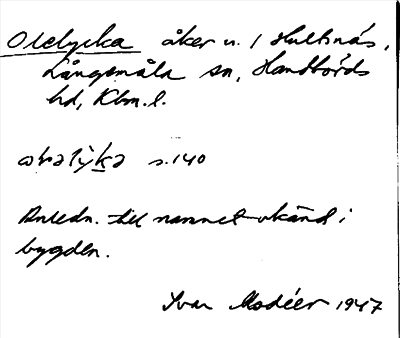 Olelycka åker u. 1 Hultsnäs,
Långemåla sn, Handbörds
hd, Klm. l.
s. 140
Anledn. till namnet okänd i
bygden.
Ivar Modéer 1947